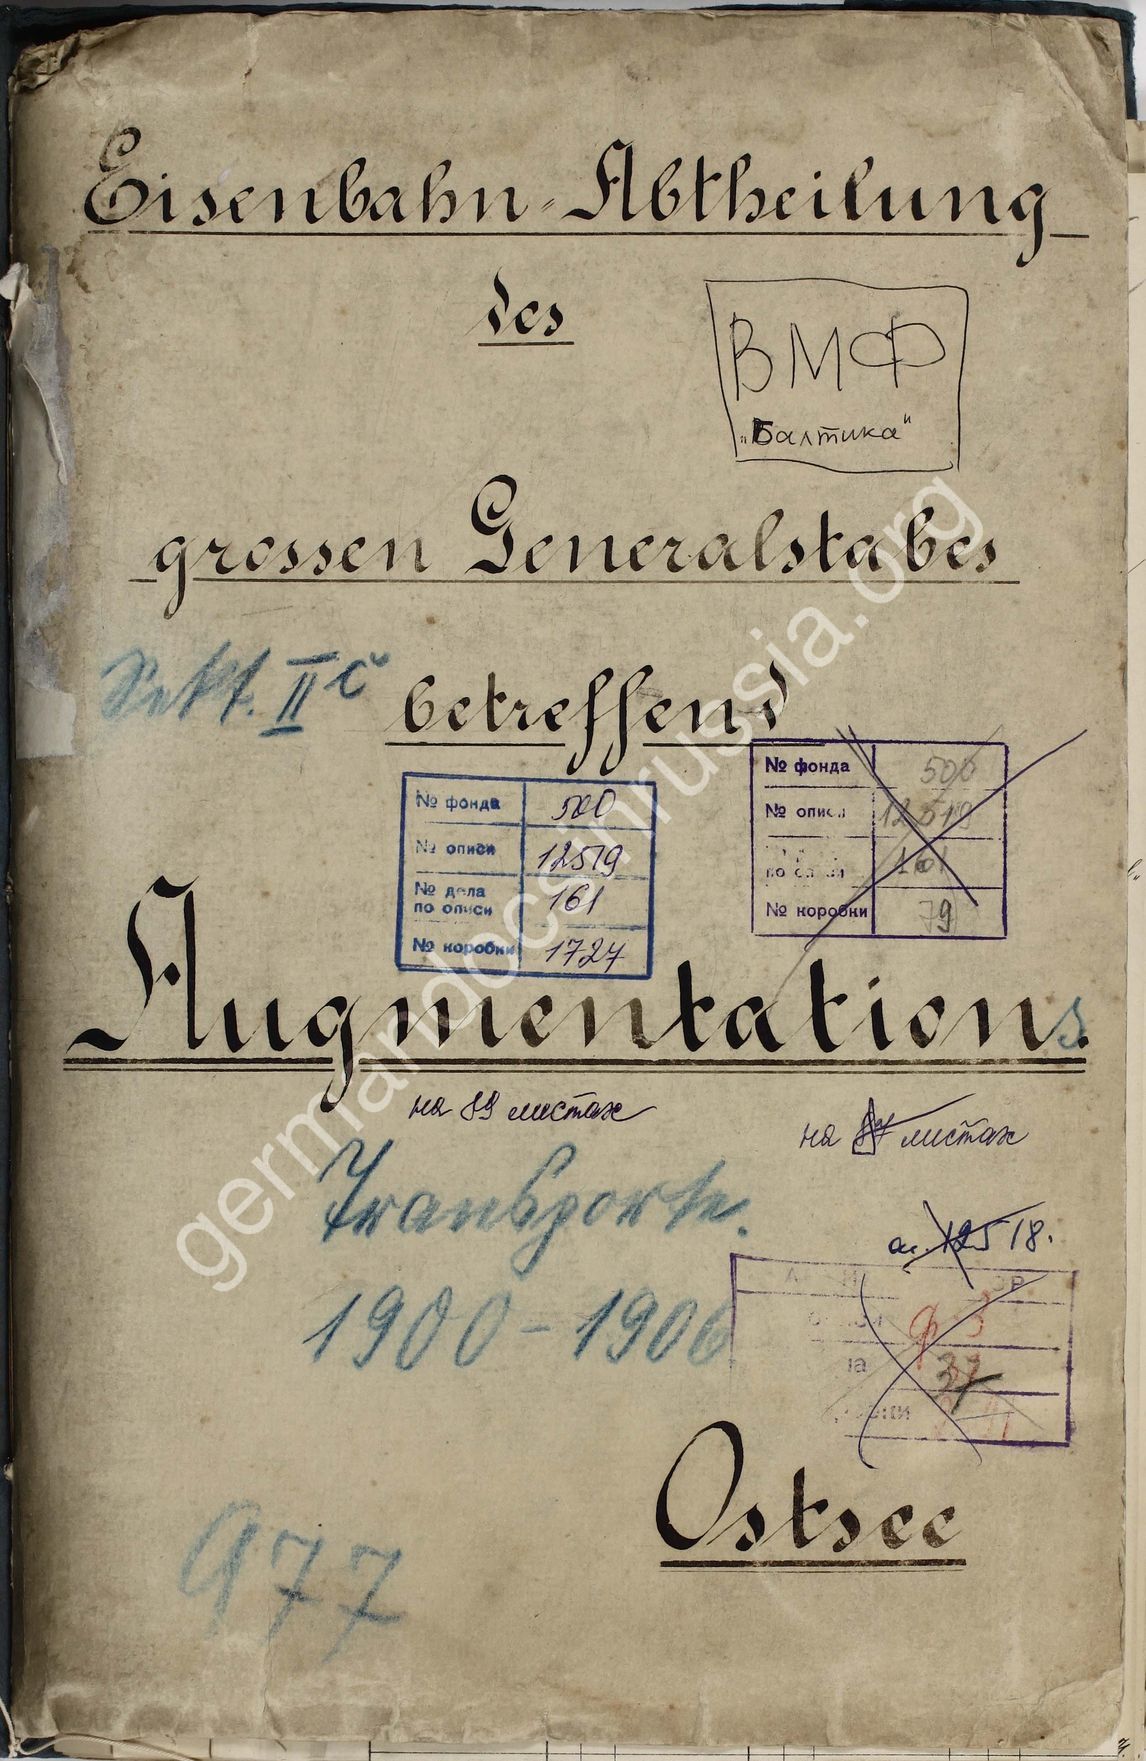 Eisenbahn-Abtheilung
des
ВМФ
„Балтика"
grossen Generalstabes
Sekt. IIc
betreffend
№ фонда 500
№ описи 12519
№ дела по описи 161
№ коробки 1727
№ фонда 500
№ описи 12519
по описи 161
№ коробки 79
Augmentations.
на 89 листах
на 87 листах
Transporte.
1900-1906
12518.
ф 3
37
Ostsee
977
germandocsinrussia.org